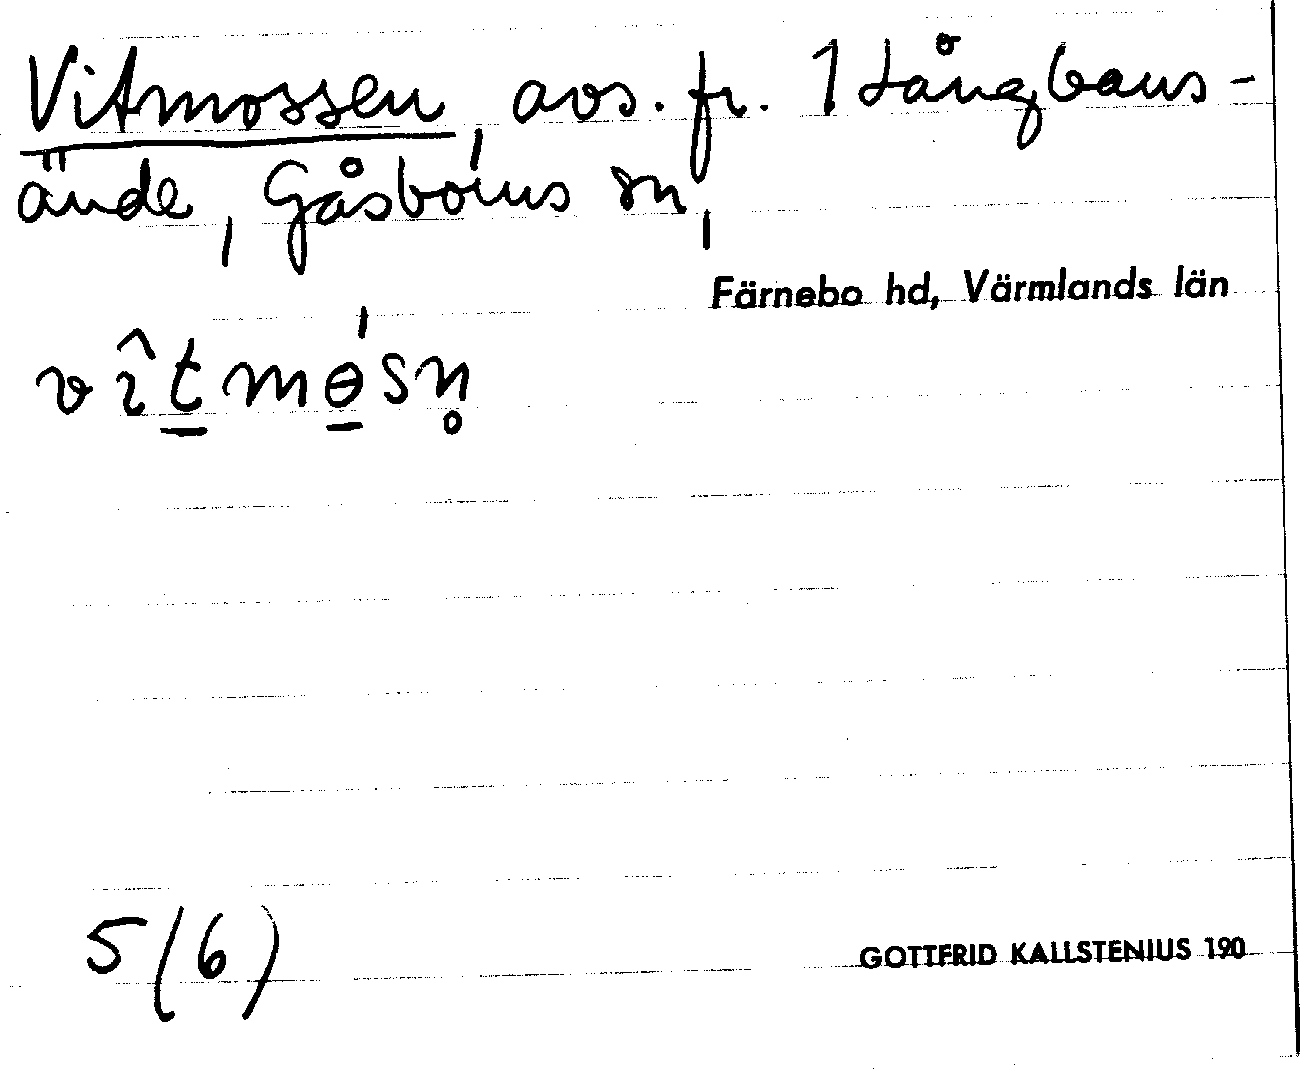 Vitmossen, avs. fr. 1 Långbans-
ände, Gåsborns sn,
Färnebo hd, Värmlands län
vîtmɵ́sn̥
5(6)
GOTTFRID KALLSTENIUS 190